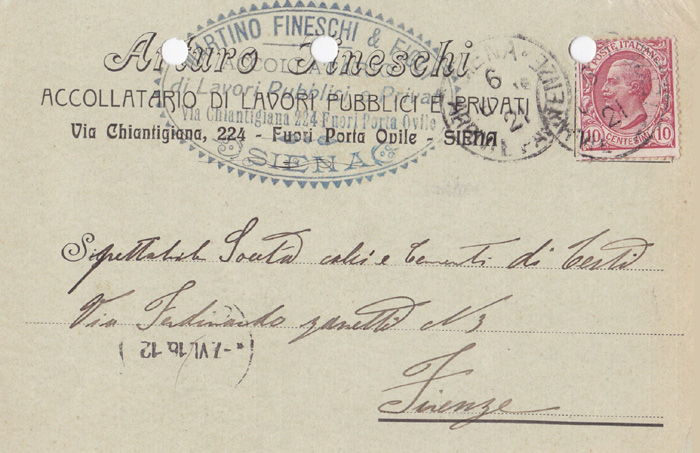 Arturo Fineschi
ACCOLLATARIO DI LAVORI PUBBLICI E PRIVATI
Via Chiantigiana, 224 - Fuori Porta Ovile - SIENA
MARTINO FINESCHI &
di Lavori Pubblici e Privati
Via Chiantigiana 224 Fuori Porta Ovile
SIENA
SIENA
6
21
POSTE ITALIANE
10 CENTESIMI 10
Spettabile Società calci e Cementi di
Via Ferdinando Zanetti N 3
-7.VI.16-12
Firenze